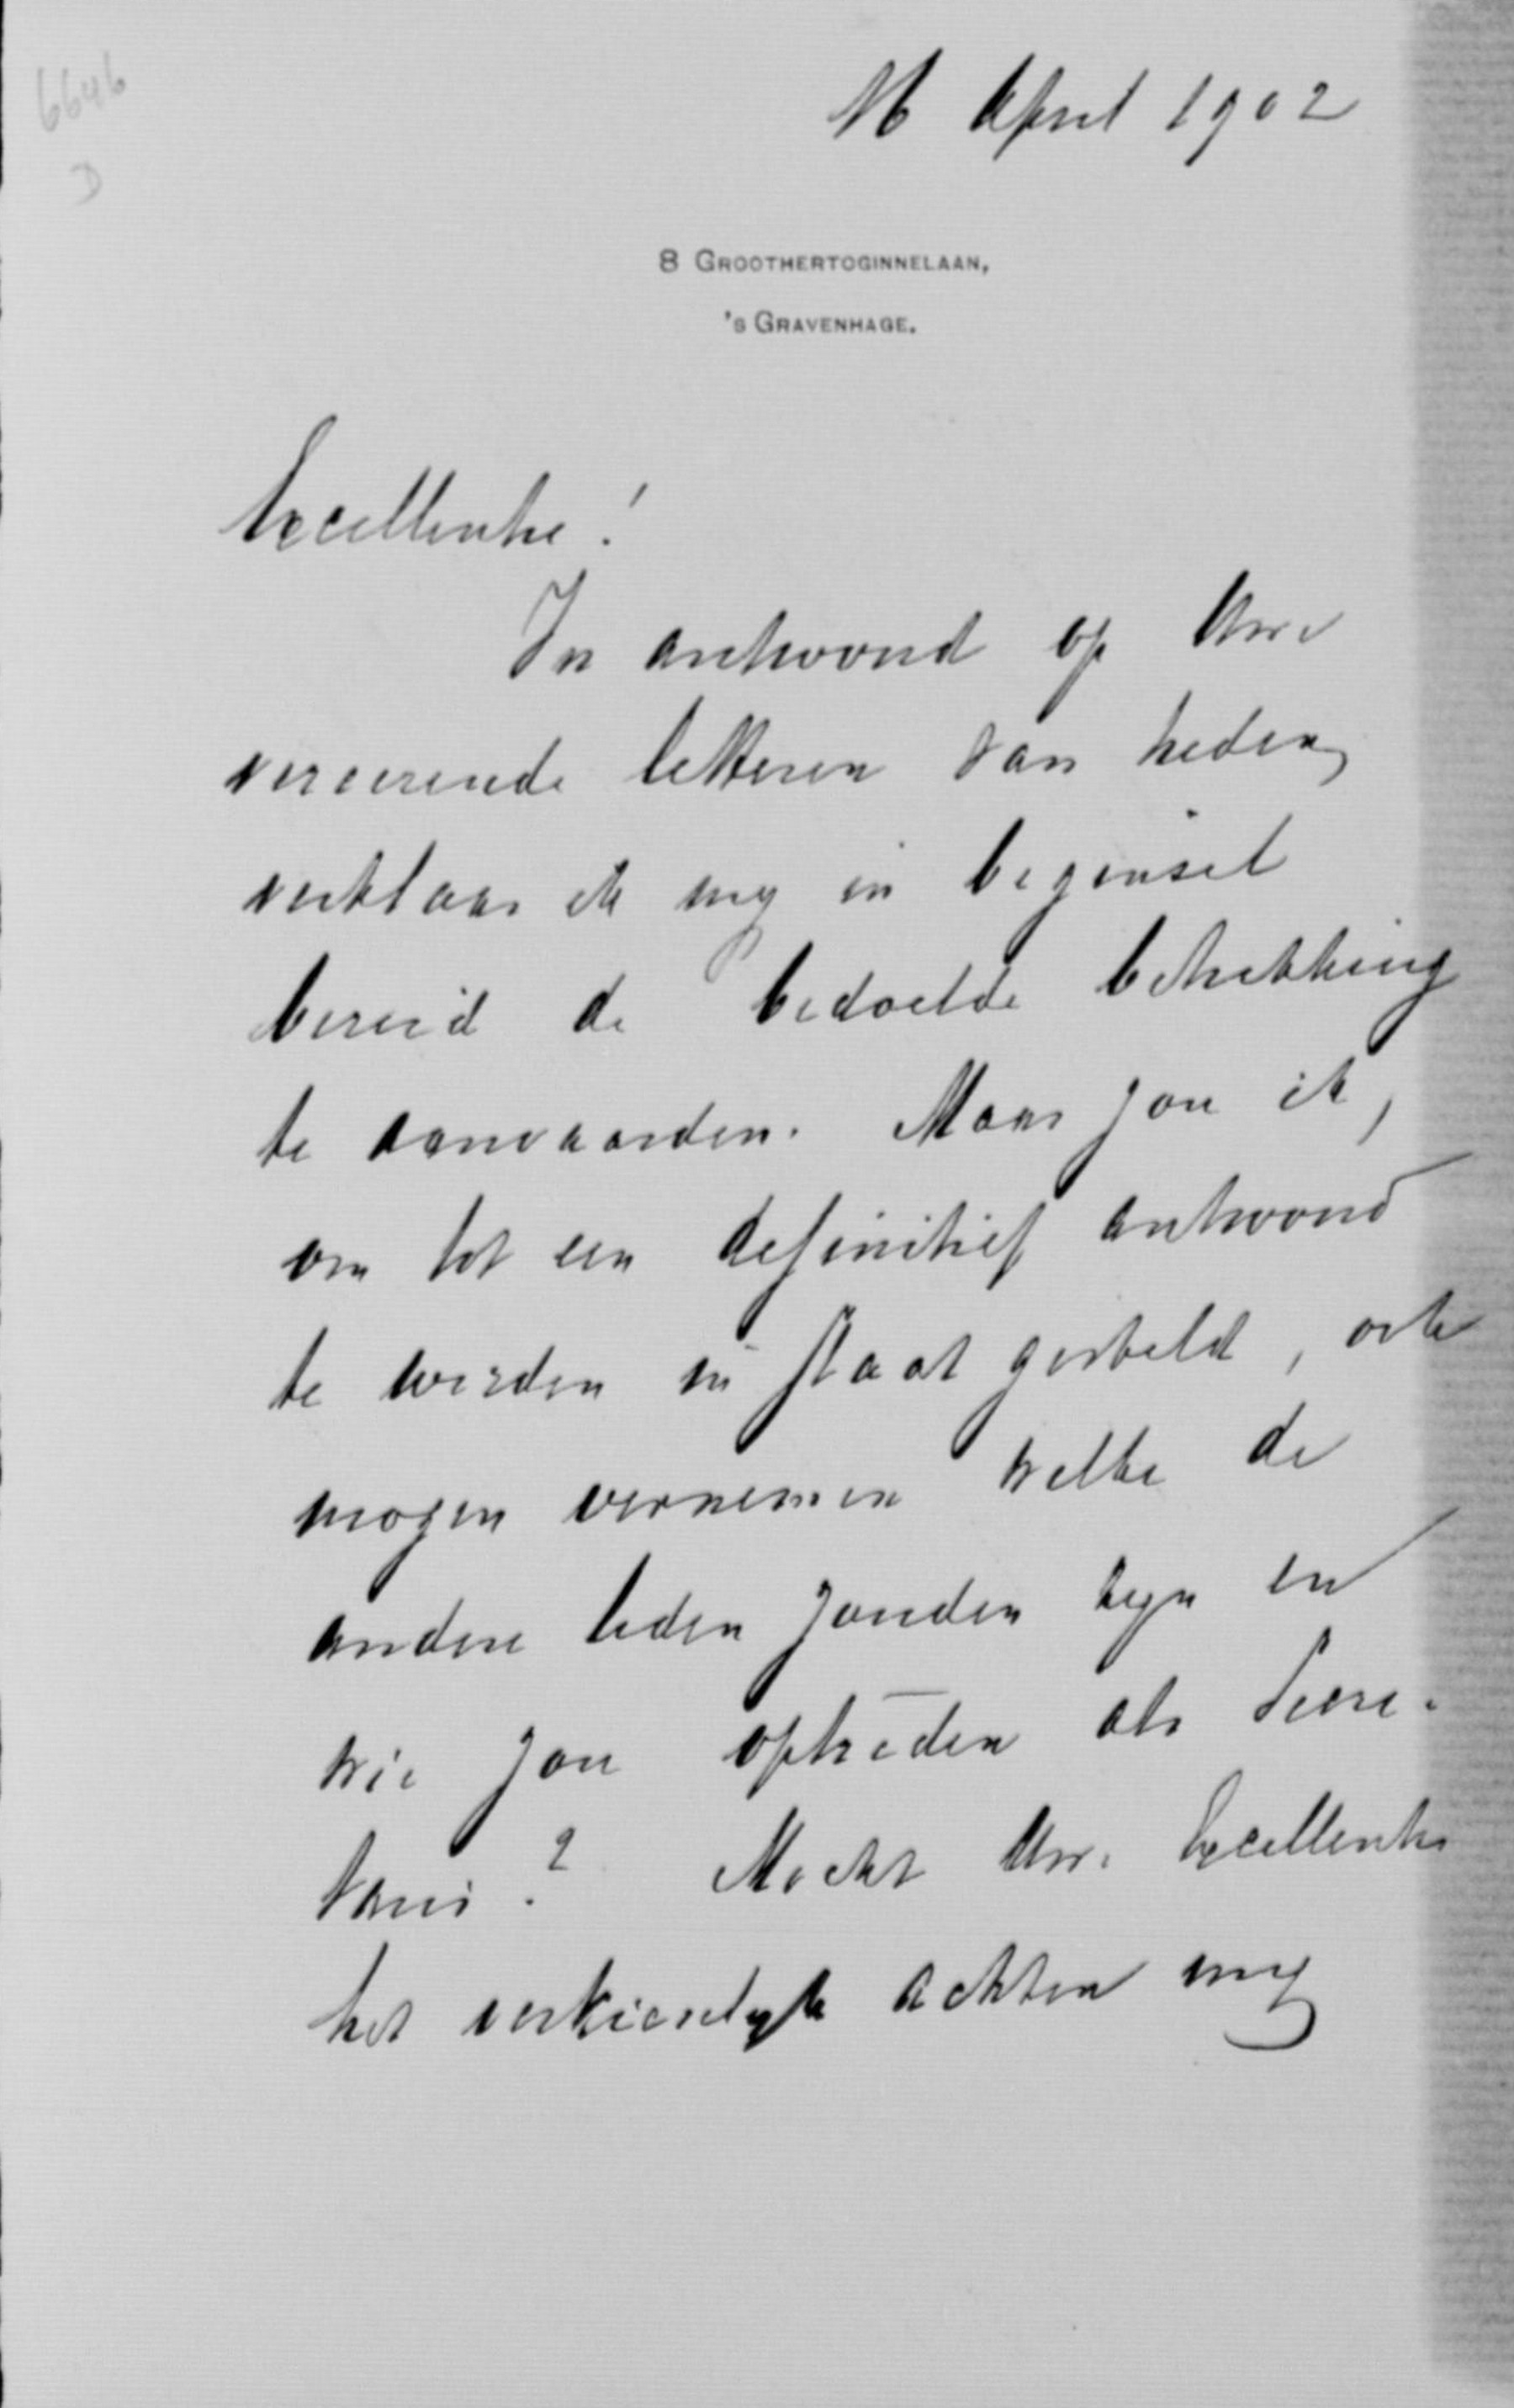 6646
D
16 April 1902
8 GROOTHERTOGINNELAAN,
's GRAVENHAGE.
Excellentie!
In antwoord op Uwe
vereerende letteren van heden,
verklaar ik mij in beginsel
bereid de bedoelde betrekking
te aanvaarden. Maar zou ik,
om tot een definitief antwoord
te worden in staat gesteld, ook
mogen vernemen welke de
andere leden zouden zijn en
wie zou optreden als Secre-
taris? Mocht Uwe Excellentie
het verkieselijk achten mij